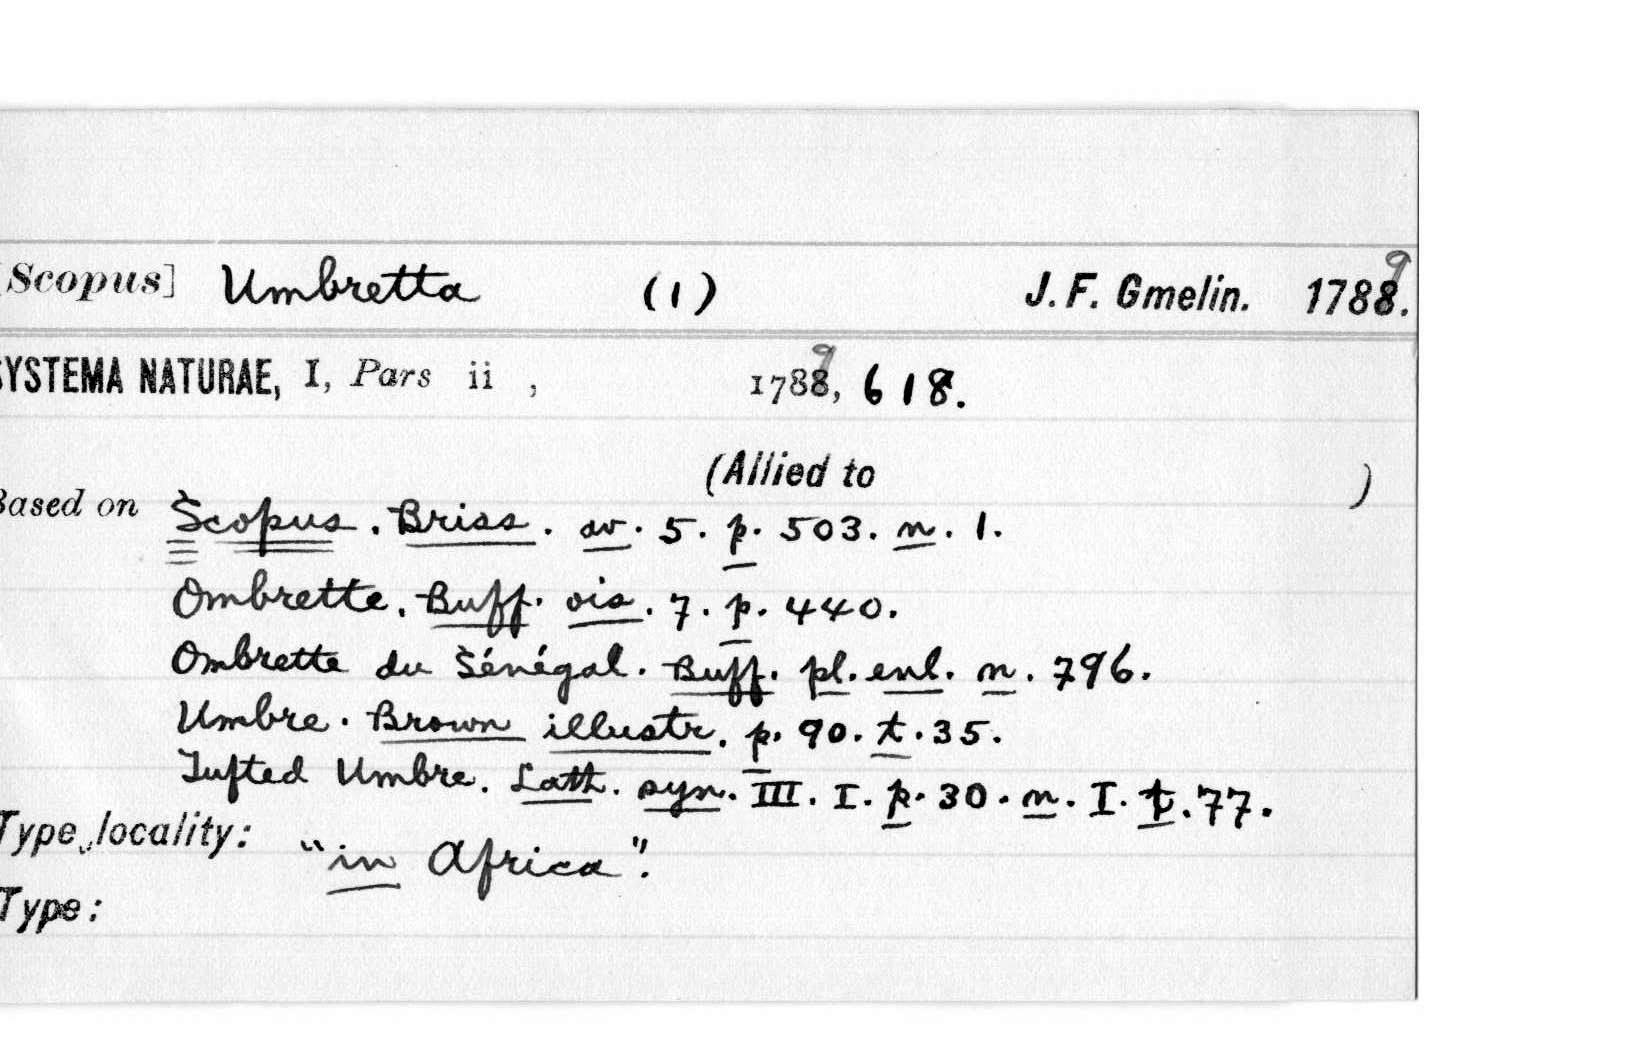 [Scopus] Umbretta (1) J. F. Gmelin. 1789.
SYSTEMA NATURAE, I, Pars ii , 1789, 618.
(Allied to )
Based on Scopus. Briss. av. 5. p. 503. n. 1.
Ombrette. Buff. ois. 7. p. 440.
Ombrette du Sénégal. Buff. pl. enl. n. 796.
Umbre. Brown illustr. p. 90. t. 35.
Tufted Umbre. Lath. syn. III. I. p. 30. n. I. t. 77.
Type locality: "in Africa".
Type: